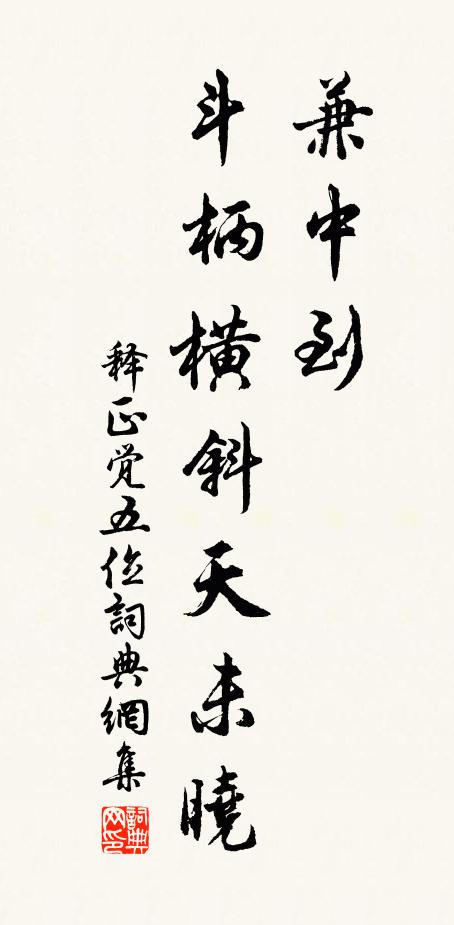 兼中到
斗柄橫斜天未曉
释正觉五位詞典網集
詞典网印